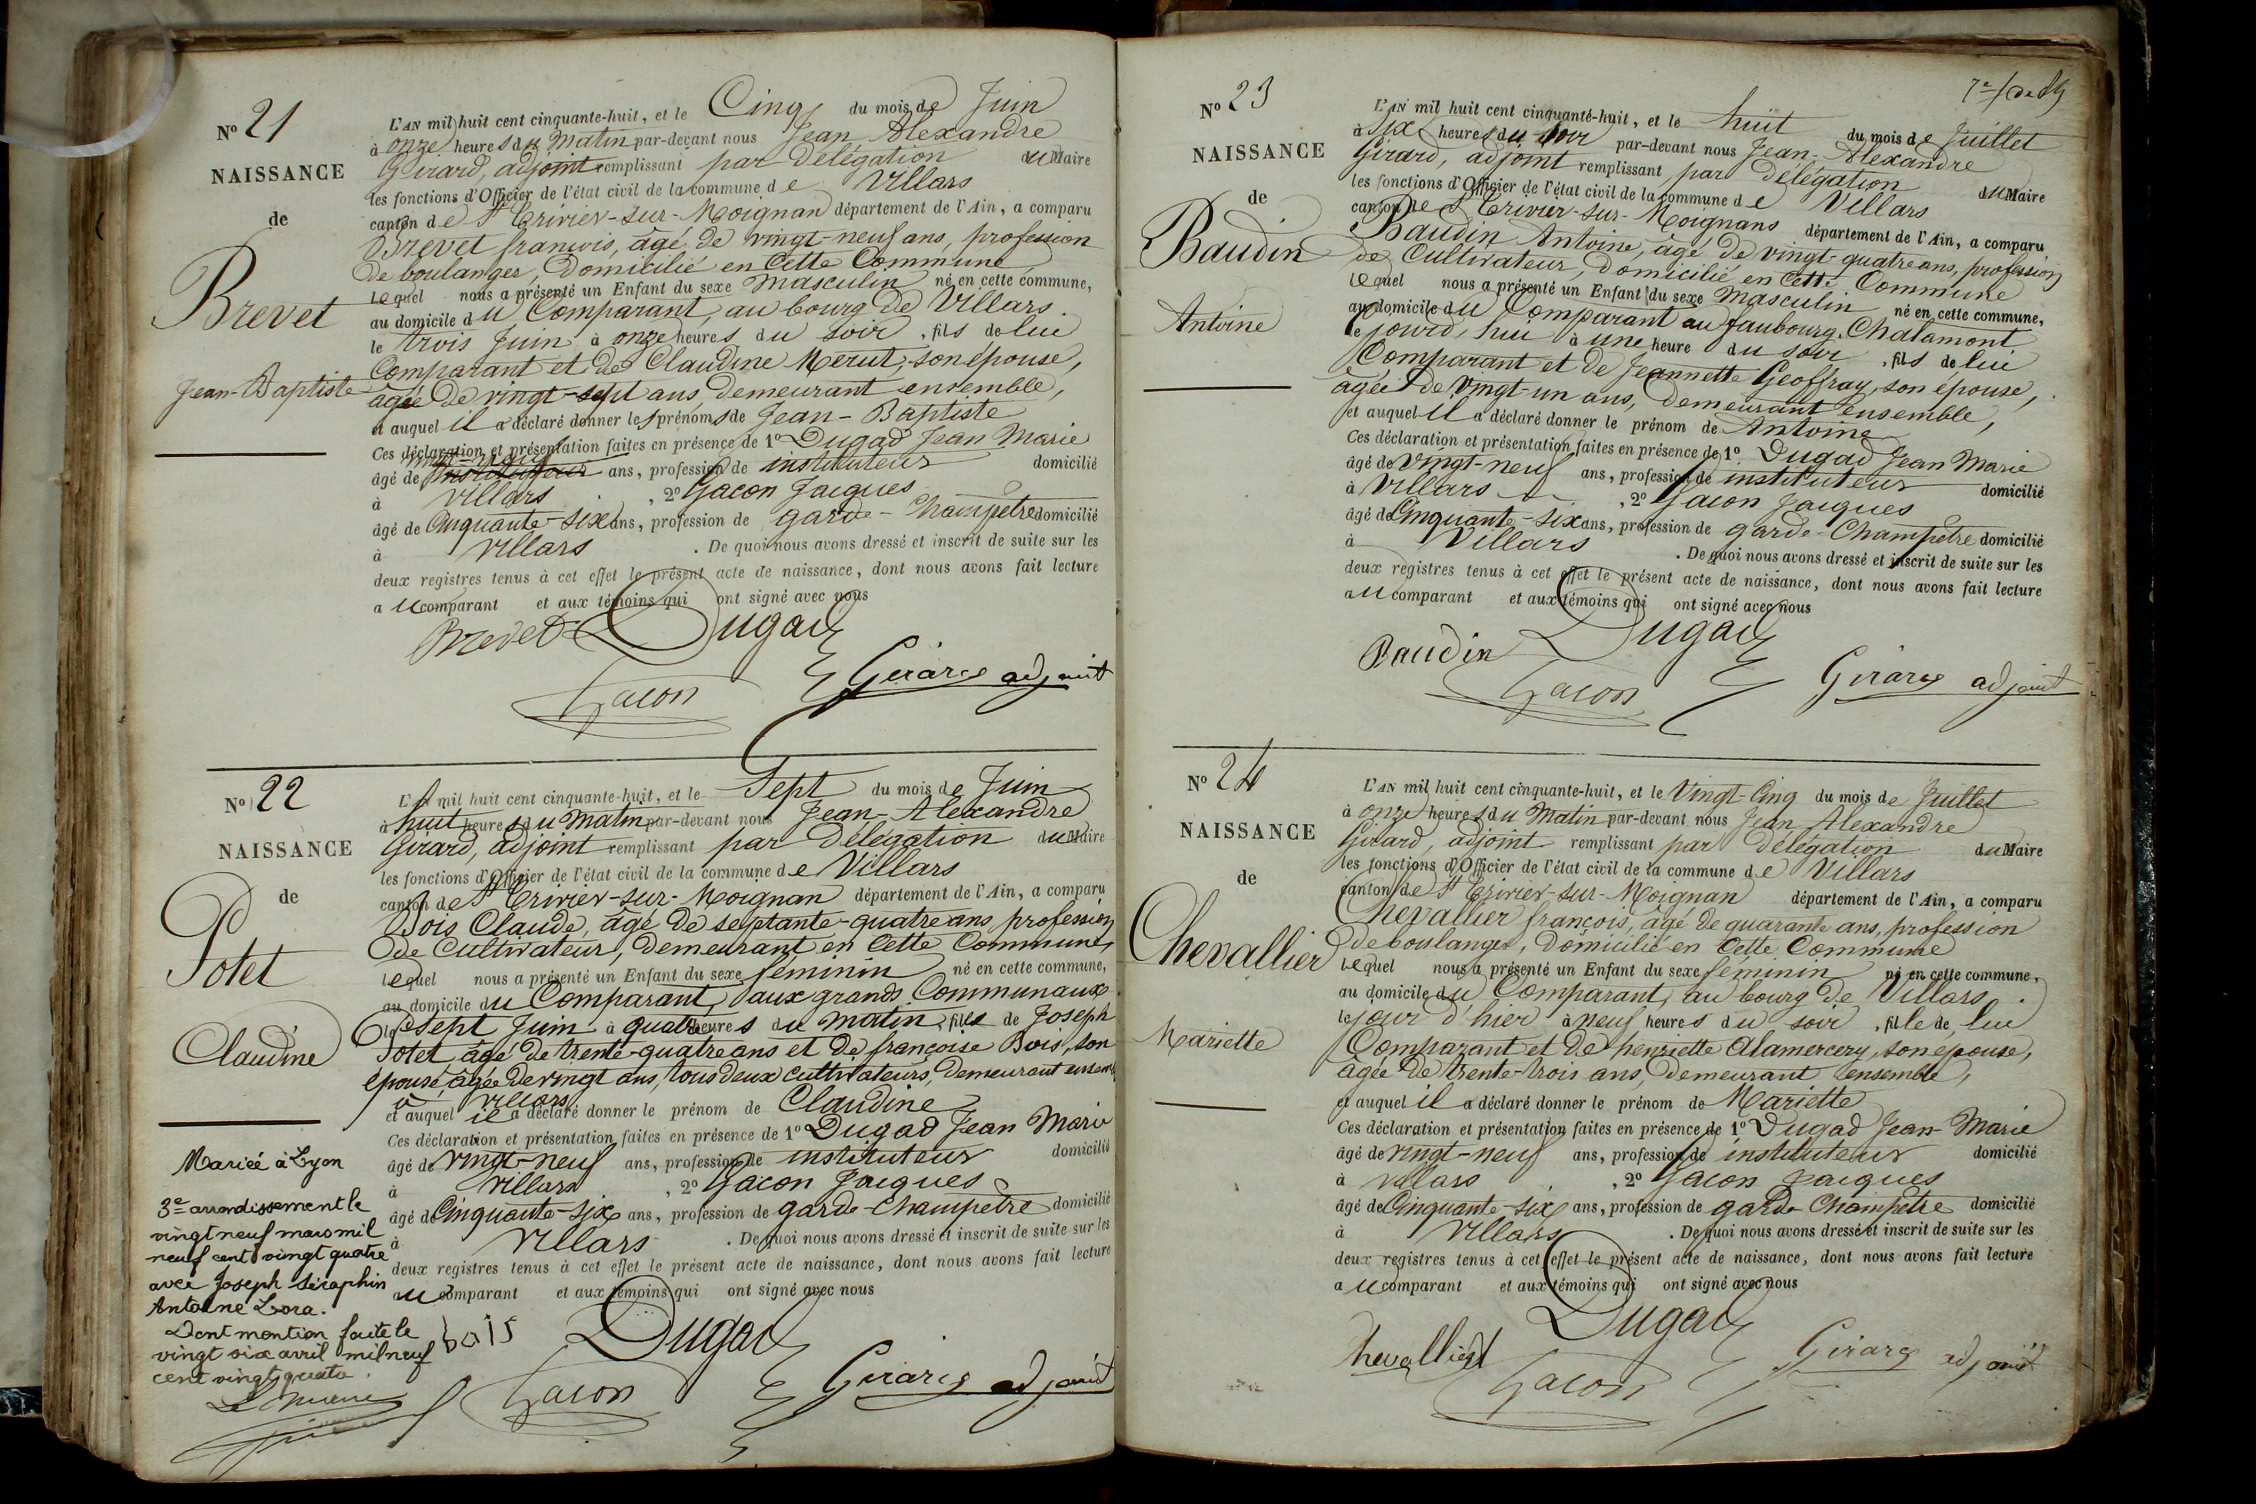 No 21
NAISSANCE
de
Brevet
Jean-Baptiste
L'AN mil huit cent cinquante-huit, et le Cinq du mois de Juin
à onze heures du Matin par-devant nous Jean Alexandre
Girard, adjoint remplissant par Délégation du Maire
les fonctions d'Officier de l'état civil de la commune de Villars
canton de St Trivier-sur-Moignan département de l'Ain, a comparu
Brevet françois, âgé de vingt-neuf ans, profession
de boulanger, Domicilié en Cette Commune
lequel nous a présenté un Enfant du sexe masculin né en cette commune,
au domicile du Comparant, au bourg de Villars.
le trois Juin à onze heures du soir, fils de lui
Comparant et de Claudine Merut, son épouse,
âgée de vingt-sept ans, demeurant ensemble,
et auquel il a déclaré donner les prénoms de Jean-Baptiste
Ces déclaration et présentation faites en présence de 1o Dugad Jean Marie
vingt-neuf
âgé de ans, profession de instituteur domicilié
à Villars, 2o Gacon Jacques
âgé de Cinquante-six ans, profession de garde-Champetre domicilié
à Villars. De quoi nous avons dressé et inscrit de suite sur les
deux registres tenus à cet effet le présent acte de naissance, dont nous avons fait lecture
au comparant et aux témoins qui ont signé avec nous
Brevet Dugad
Gacon Girard adjoint
No 22
NAISSANCE
de
Potet
Claudine
L'AN mil huit cent cinquante-huit, et le Sept du mois de Juin
à huit heures du Matin par-devant nous Jean-Alexandre
Girard, adjoint remplissant par Délégation du Maire
les fonctions d'Officier de l'état civil de la commune de Villars
canton de St Trivier-sur-Moignan département de l'Ain, a comparu
Bois Claude, âgé de septante-quatre ans, profession
de Cultivateur, demeurant en Cette Commune,
lequel nous a présenté un Enfant du sexe féminin né en cette commune,
au domicile du Comparant, aux grands Communaux
le sept Juin à quatre heures du matin, fille de Joseph
Potet âgé de trente-quatre ans et de françoise Bois, son
épouse, âgée de vingt ans, tous deux cultivateurs, demeurant ensem
à Villars
et auquel il a déclaré donner le prénom de Claudine
Ces déclaration et présentation faites en présence de 1o Dugad Jean Marie
âgé de vingt-neuf ans, profession de instituteur domicilié
à Villars, 2o Gacon Jacques
âgé de Cinquante-six ans, profession de garde-Champetre domicilié
à Villars. De quoi nous avons dressé et inscrit de suite sur les
deux registres tenus à cet effet le présent acte de naissance, dont nous avons fait lecture
au comparant et aux témoins qui ont signé avec nous
bois Dugad
Gacon Girard adjoint
Mariée à Lyon
3e arrondissement le
vingt neuf mars mil
neuf cent vingt quatre
avec Joseph Séraphin
Antoine Lora.
Dont mention faite le
vingt six avril mil neuf
cent vingt quatre.
No 23
NAISSANCE
de
Baudin
Antoine
L'AN mil huit cent cinquante-huit, et le huit du mois de Juillet
à six heures du soir par-devant nous Jean-Alexandre
Girard, adjoint remplissant par Délégation du Maire
les fonctions d'Officier de l'état civil de la commune de Villars
canton de St Trivier-sur-Moignans département de l'Ain, a comparu
Baudin Antoine, âgé de vingt-quatre ans, profession
de Cultivateur, domicilié en Cette Commune
lequel nous a présenté un Enfant du sexe Masculin né en cette commune,
au domicile du Comparant au faubourg Chalamont
le jourd'hui à une heure du soir, fils de lui
Comparant et de Jeannette Geoffray, son épouse,
âgée de vingt-un ans, Demeurant ensemble,
et auquel il a déclaré donner le prénom de Antoine
Ces déclaration et présentation faites en présence de 1o Dugad Jean Marie
âgé de vingt-neuf ans, profession de instituteur domicilié
à Villars, 2o Gacon Jacques
âgé de Cinquante-six ans, profession de garde-Champetre domicilié
à Villars. De quoi nous avons dressé et inscrit de suite sur les
deux registres tenus à cet effet le présent acte de naissance, dont nous avons fait lecture
au comparant et aux témoins qui ont signé avec nous
Baudin Dugad
Gacon Girard adjoint
No 24
NAISSANCE
de
Chevallier
Mariette
L'AN mil huit cent cinquante-huit, et le Vingt-Cinq du mois de Juillet
à onze heures du Matin par-devant nous Jean Alexandre
Girard, adjoint remplissant par Délégation du Maire
les fonctions d'Officier de l'état civil de la commune de Villars
canton de St Trivier-sur-Moignan département de l'Ain, a comparu
Chevallier françois, âgé de quarante ans, profession
de boulanger, Domicilié en Cette Commune
lequel nous a présenté un Enfant du sexe féminin né en cette commune,
au domicile du Comparant, au bourg de Villars.
le jour d'hier à neuf heures du soir, fille de lui
Comparant et de henriette Alamercery, son épouse,
âgée de trente-trois ans, Demeurant ensemble,
et auquel il a déclaré donner le prénom de Mariette
Ces déclaration et présentation faites en présence de 1o Dugad Jean-Marie
âgé de vingt-neuf ans, profession de instituteur domicilié
à Villars, 2o Gacon Jacques
âgé de Cinquante-six ans, profession de garde Champetre domicilié
à Villars. De quoi nous avons dressé et inscrit de suite sur les
deux registres tenus à cet effet le présent acte de naissance, dont nous avons fait lecture
au comparant et aux témoins qui ont signé avec nous
Chevallier Dugad
Gacon Girard adjoint